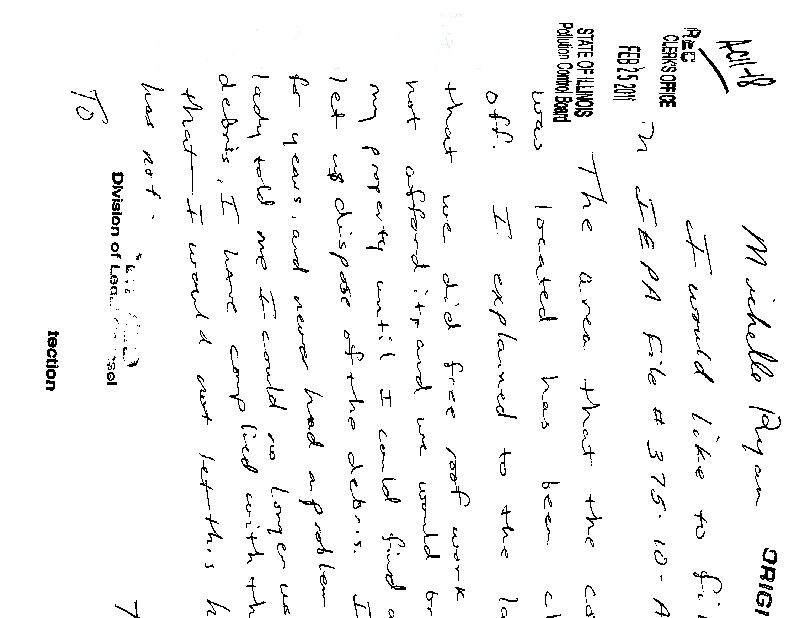 AC11-18
REC
CLERK'S OFFICE
FEB 25 2011
STATE OF ILLINOIS
Pollution Control Board
ORIGI
Michelle Ryan
I would like to fi
in IEPA File # 375-10-A
The area that the co
was located has been cl
off. I explained to the la
that we did free roof work
not afford it, and we would br
my property until I could find a
let us dispose of the debris. I
for years, and never had a problem
lady told me I could no longer us
debris, I have complied with th
that I would not let this h
has not.
To
Division of Lega
sel
tection